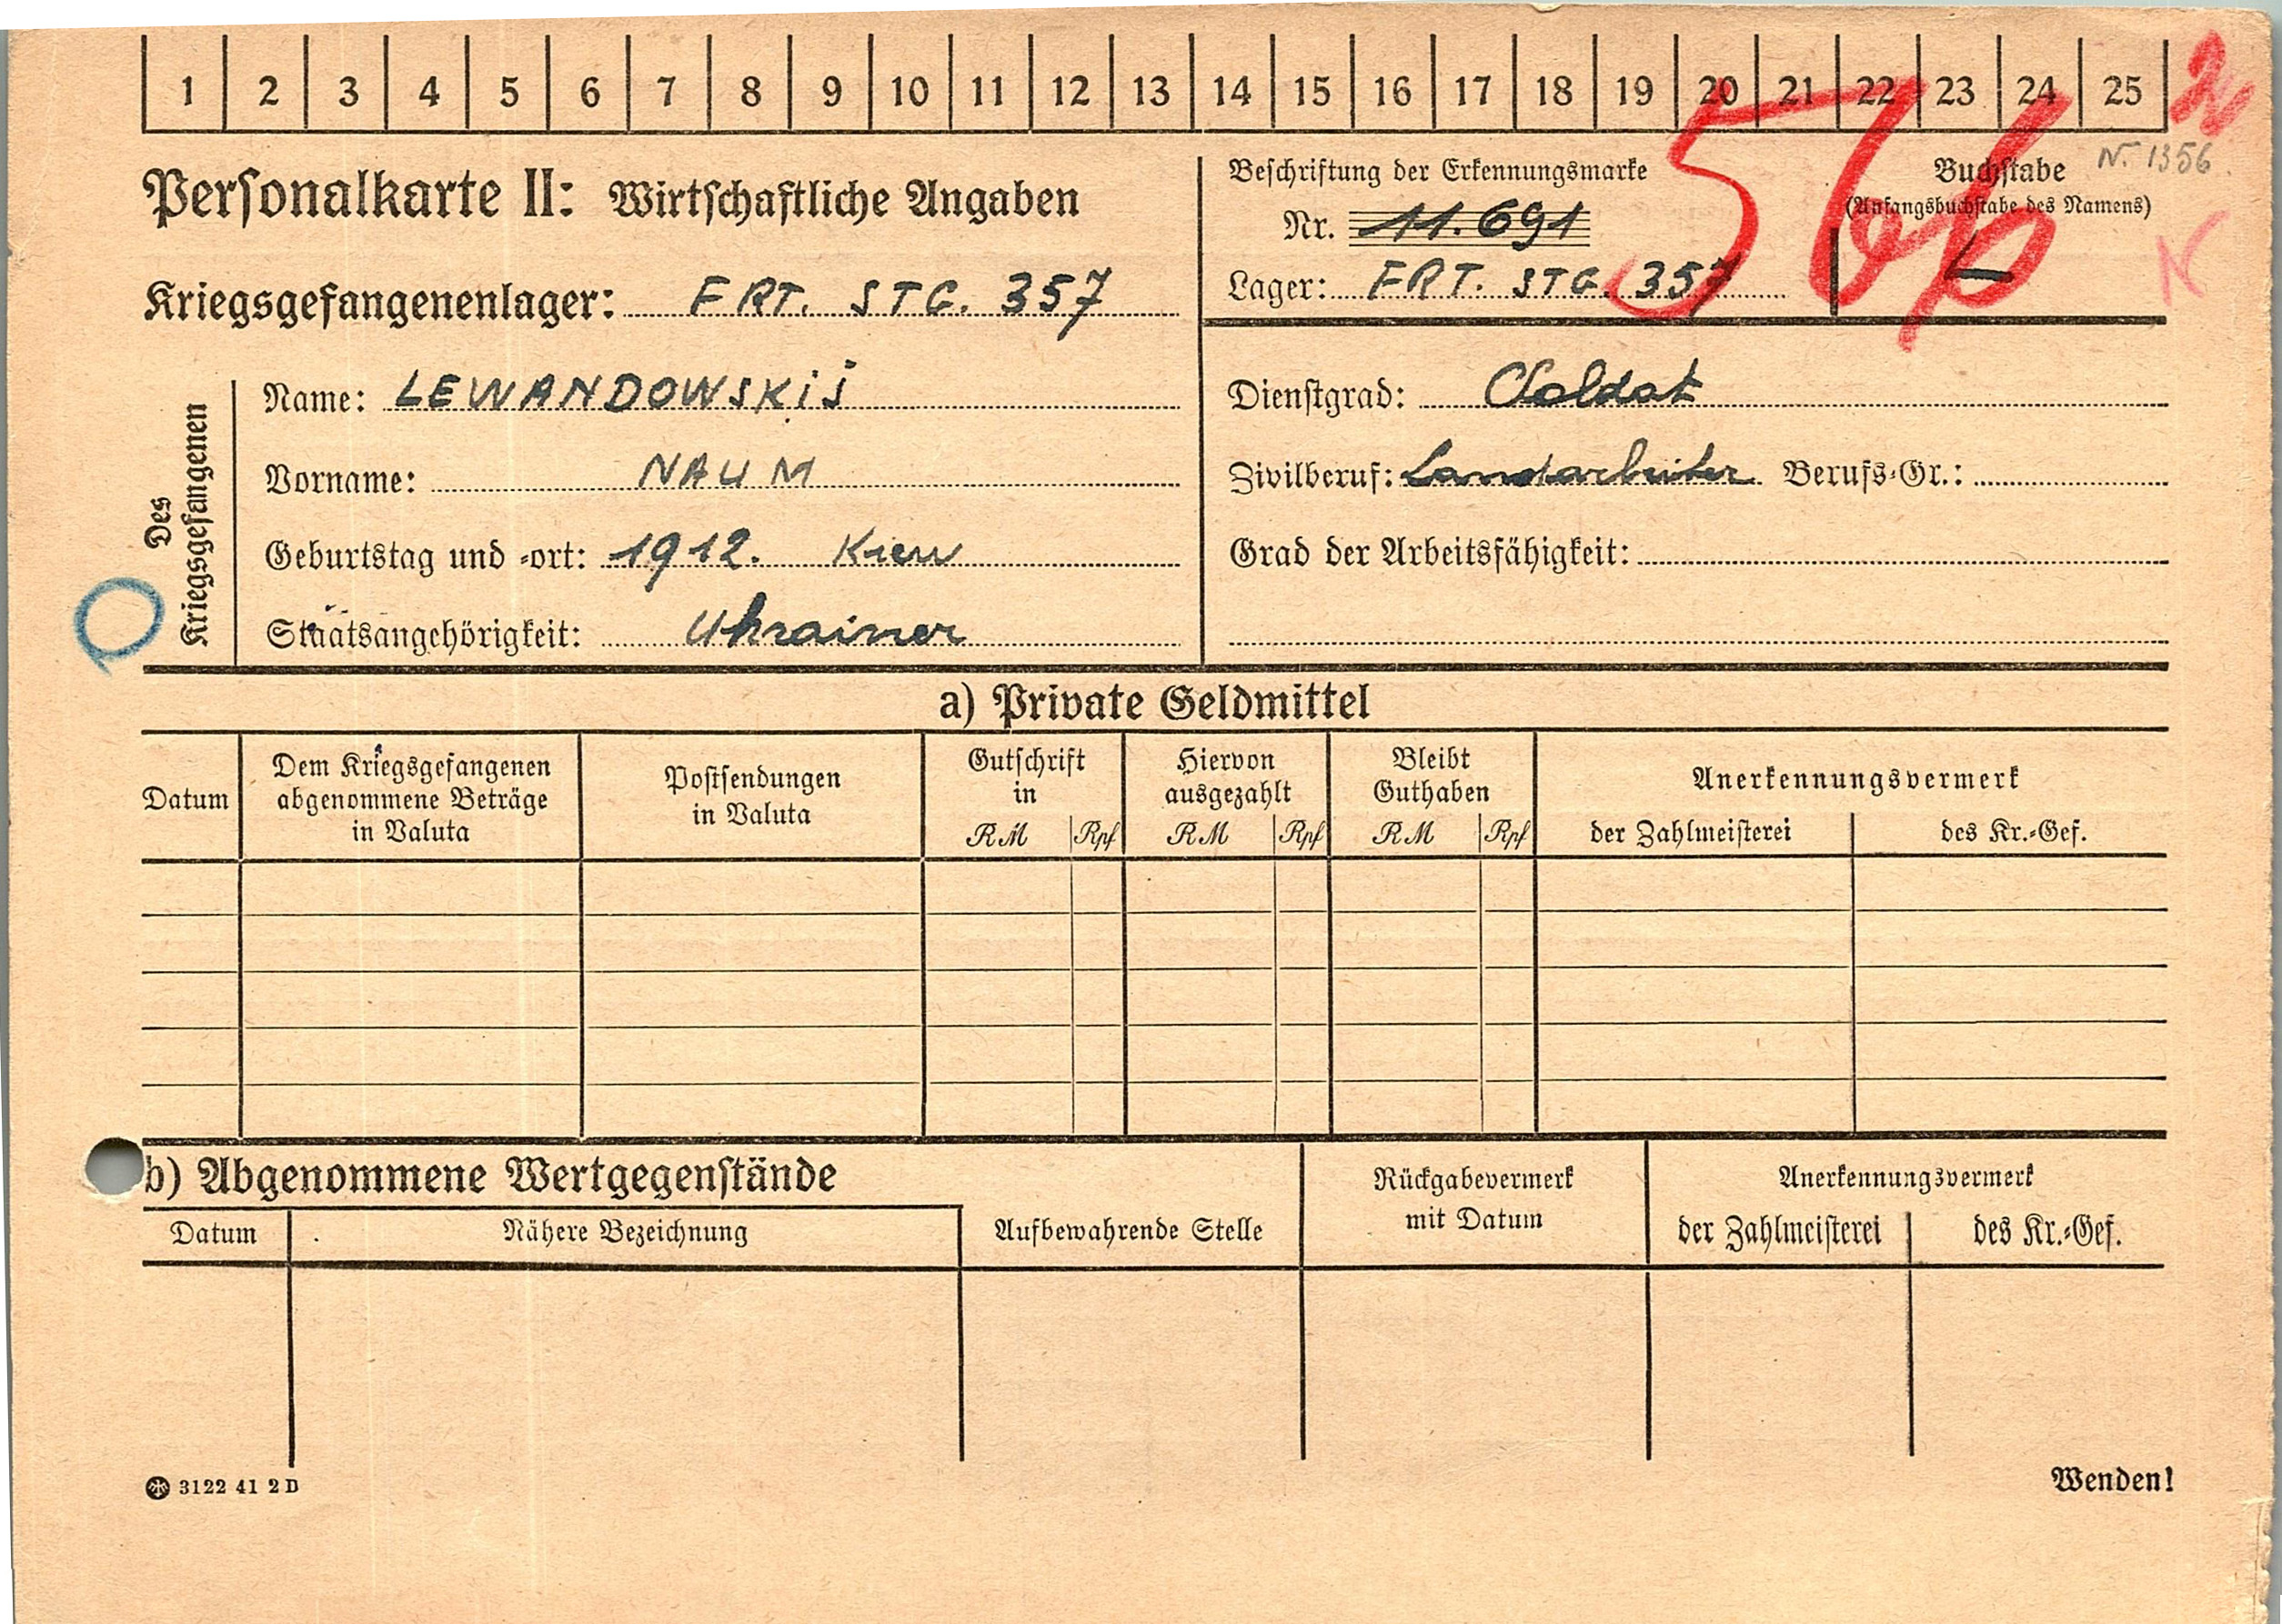 1 2 3 4 5 6 7 8 9 10 11 12 13 14 15 16 17 18 19 20 21 22 23 24 25
Personalkarte II: Wirtschaftliche Angaben
Kriegsgefangenenlager: FRT. STG. 357
Beschriftung der Erkennungsmarke
Nr. 11.691
Lager: FRT. STG. 357
Buchstabe
N. 1356
(Anfangsbuchstabe des Namens)
L
N
Des Kriegsgefangenen
Name: LEWANDOWSKIJ
Vorname: NAUM
Geburtstag und -ort: 1912. Kiew
Staatsangehörigkeit: Ukrainer
Dienstgrad: Soldat
Zivilberuf: Landarbeiter Berufs-Gr.:
Grad der Arbeitsfähigkeit:
a) Private Geldmittel
Datum
Dem Kriegsgefangenen
abgenommene Beträge
in Valuta
Postsendungen
in Valuta
Gutschrift
in
RM Rpf
Hiervon
ausgezahlt
RM Rpf
Bleibt
Guthaben
RM Rpf
Anerkennungsvermerk
der Zahlmeisterei des Kr.-Gef.
b) Abgenommene Wertgegenstände
Datum Nähere Bezeichnung Aufbewahrende Stelle
Rückgabevermerk
mit Datum
Anerkennungsvermerk
der Zahlmeisterei des Kr.-Gef.
3122 41 2 D
Wenden!